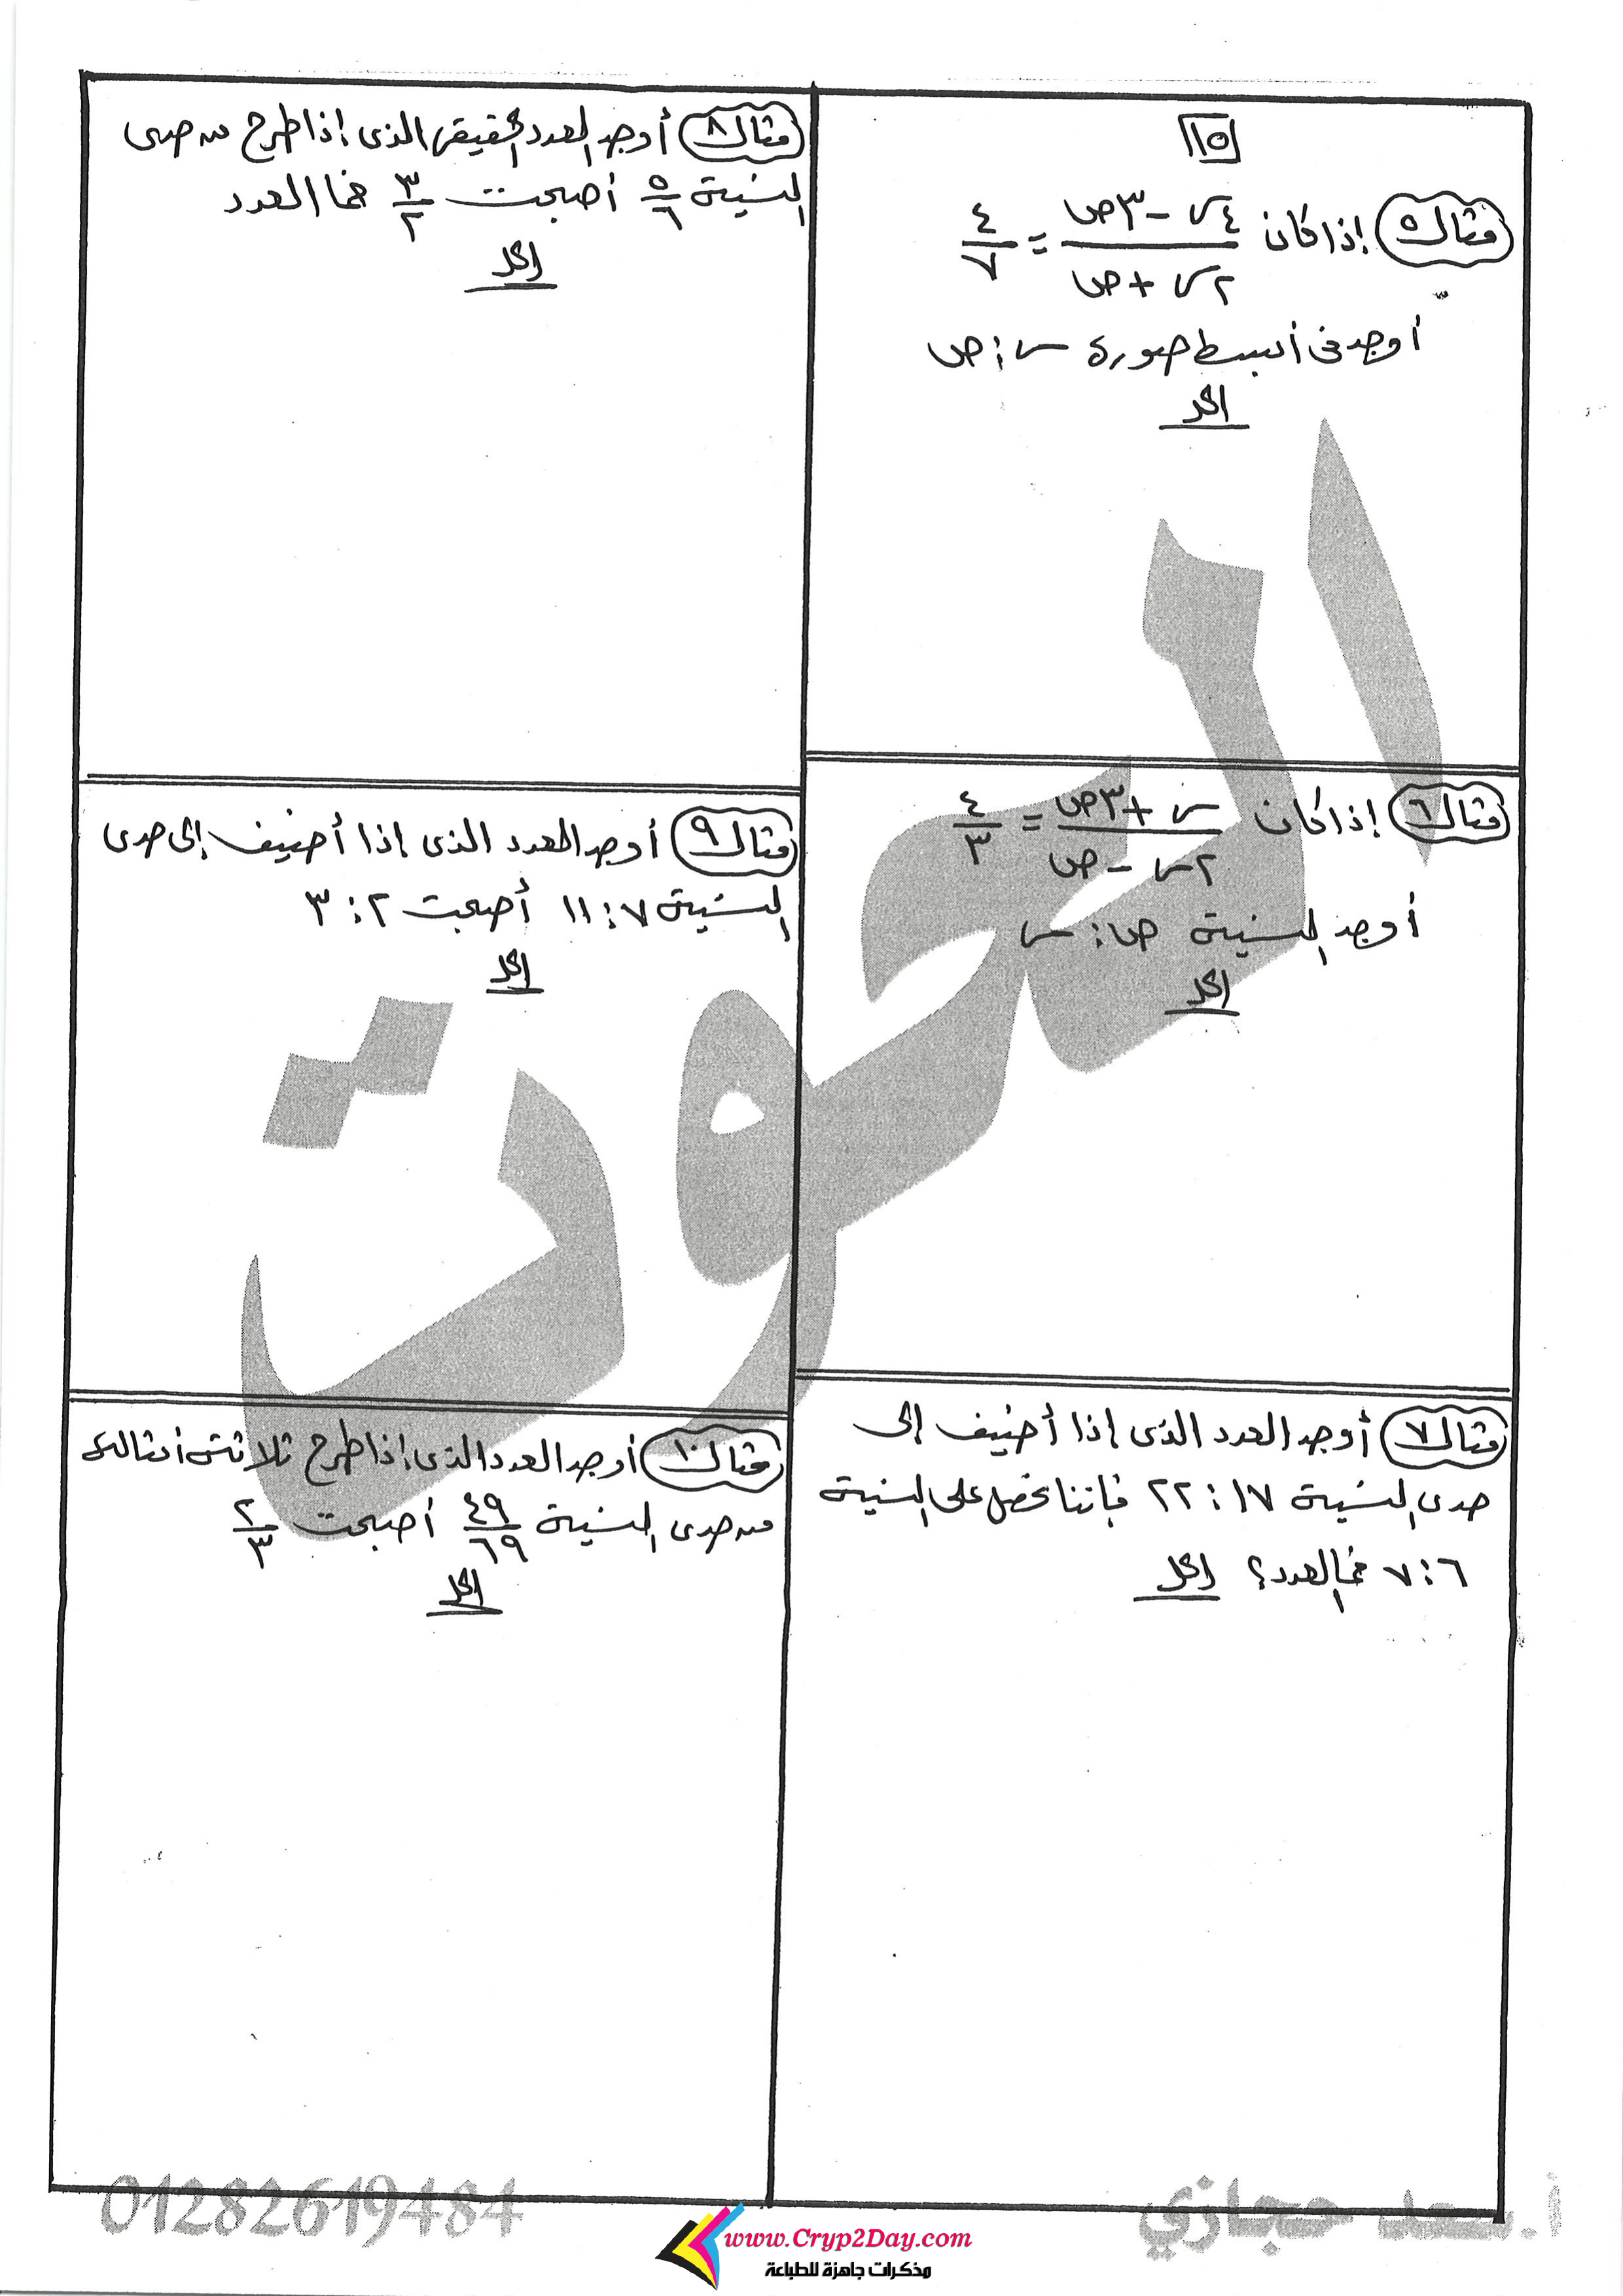 ١٥
مثال ٥ إذا كان (٤س − ٣ص)/(٢س + ص) = ٤/٧
أوجد فى أبسط صورة س : ص
الحل
مثال ٦ إذا كان (س + ٣ص)/(٢س − ص) = ٤/٣
أوجد النسبة ص : س
الحل
مثال ٧ أوجد العدد الذى إذا أضيف إلى
حدى النسبة ١٧ : ٢٢ فإننا نحصل على النسبة
٦ : ٧ فما العدد؟ الحل
مثال ٨ أوجد العدد الحقيقى الذى إذا طرح من حدى
النسبة ٥/٦ أصبحت ٣/٢ فما العدد
الحل
مثال ٩ أوجد العدد الذى إذا أضيف إلى حدى
النسبة ٧ : ١١ أصبحت ٢ : ٣
الحل
مثال ١٠ أوجد العدد الذى إذا طرح ثلاثة أمثاله
من حدى النسبة ٤٩/٦٩ أصبحت ٢/٣
الحل
الحوت
أ. سعد حجازي
01282619484
www.Cryp2Day.com
مذكرات جاهزة للطباعة